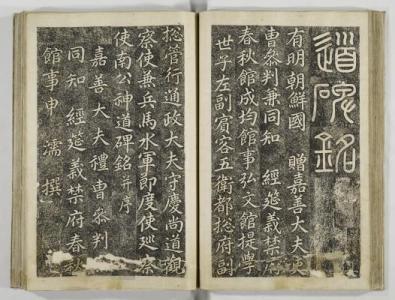 道碑銘
有明朝鮮國　贈嘉善大夫吏
曹參判兼同知　經筵義禁府
春秋館成均館事弘文館提學
世子左副賓客五衛都摠府副
摠管行通政大夫守慶尚道觀
察使兼兵馬水軍節度使巡察
使南公神道碑銘并序
嘉善大夫禮曹參判
同知　經筵義禁府春秋
館事申濡撰